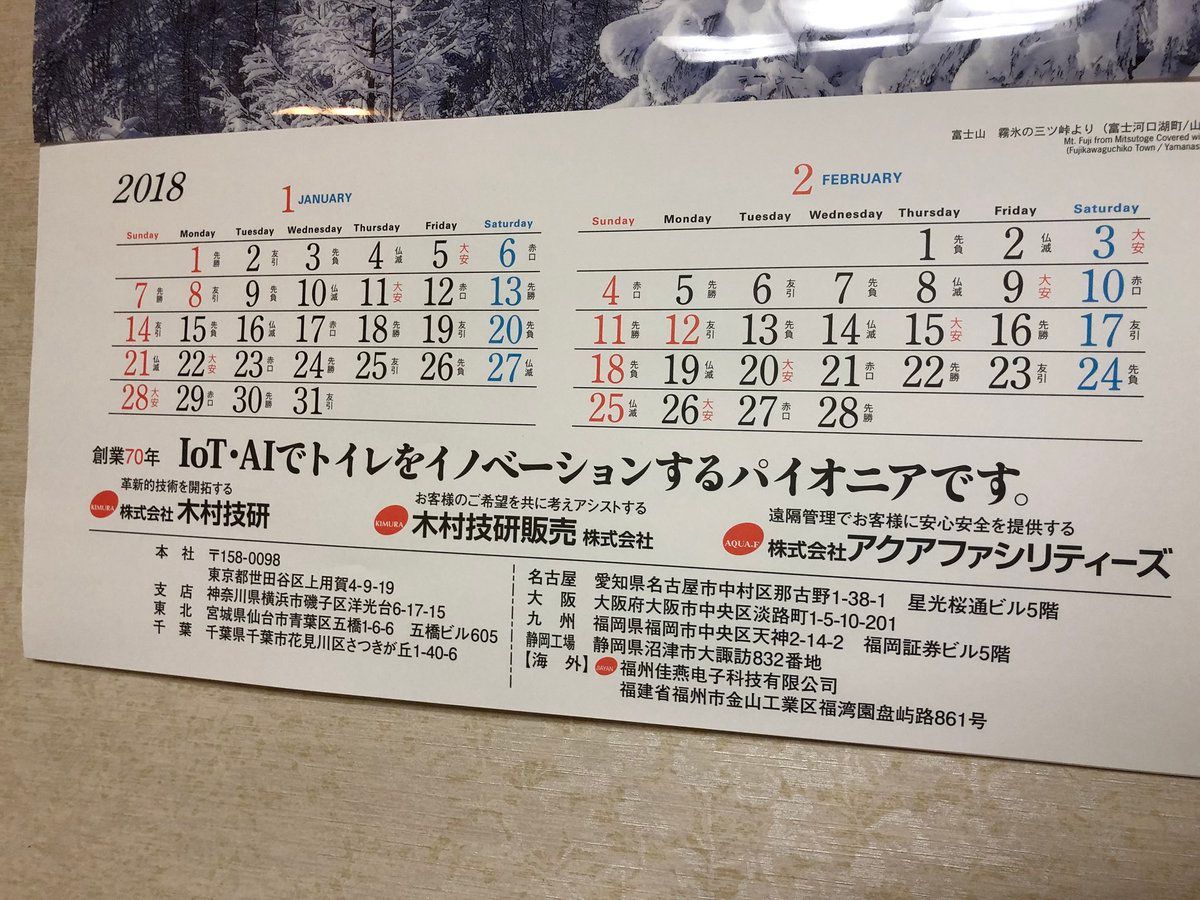 富士山 霧氷の三ツ峠より (富士河口湖町/山
Mt. Fuji from Mitsutoge Covered wi
(Fujikawaguchiko Town / Yamanas
2018
1 JANUARY
Sunday Monday Tuesday Wednesday Thursday Friday Saturday
1 先勝 2 友引 3 先負 4 仏滅 5 大安 6 赤口
7 先勝 8 友引 9 先負 10 仏滅 11 大安 12 赤口 13 先勝
14 友引 15 先負 16 仏滅 17 赤口 18 先勝 19 友引 20 先負
21 仏滅 22 大安 23 赤口 24 先勝 25 友引 26 先負 27 仏滅
28 大安 29 赤口 30 先勝 31 友引
2 FEBRUARY
Sunday Monday Tuesday Wednesday Thursday Friday Saturday
1 先負 2 仏滅 3 大安
4 赤口 5 先勝 6 友引 7 先負 8 仏滅 9 大安 10 赤口
11 先勝 12 友引 13 先負 14 仏滅 15 大安 16 先勝 17 友引
18 先負 19 仏滅 20 大安 21 赤口 22 先勝 23 友引 24 先負
25 仏滅 26 大安 27 赤口 28 先勝
創業70年 IoT・AIでトイレをイノベーションするパイオニアです。
革新的技術を開拓する
KIMURA 株式会社 木村技研
お客様のご希望を共に考えアシストする
KIMURA 木村技研販売 株式会社
遠隔管理でお客様に安心安全を提供する
AQUA-F 株式会社 アクアファシリティーズ
本社 〒158-0098
東京都世田谷区上用賀4-9-19
支店 神奈川県横浜市磯子区洋光台6-17-15
東北 宮城県仙台市青葉区五橋1-6-6 五橋ビル605
千葉 千葉県千葉市花見川区さつきが丘1-40-6
名古屋 愛知県名古屋市中村区那古野1-38-1 星光桜通ビル5階
大阪 大阪府大阪市中央区淡路町1-5-10-201
九州 福岡県福岡市中央区天神2-14-2 福岡証券ビル5階
静岡工場 静岡県沼津市大諏訪832番地
【海外】 福州佳燕电子科技有限公司
福建省福州市金山工業区福湾園盘屿路861号